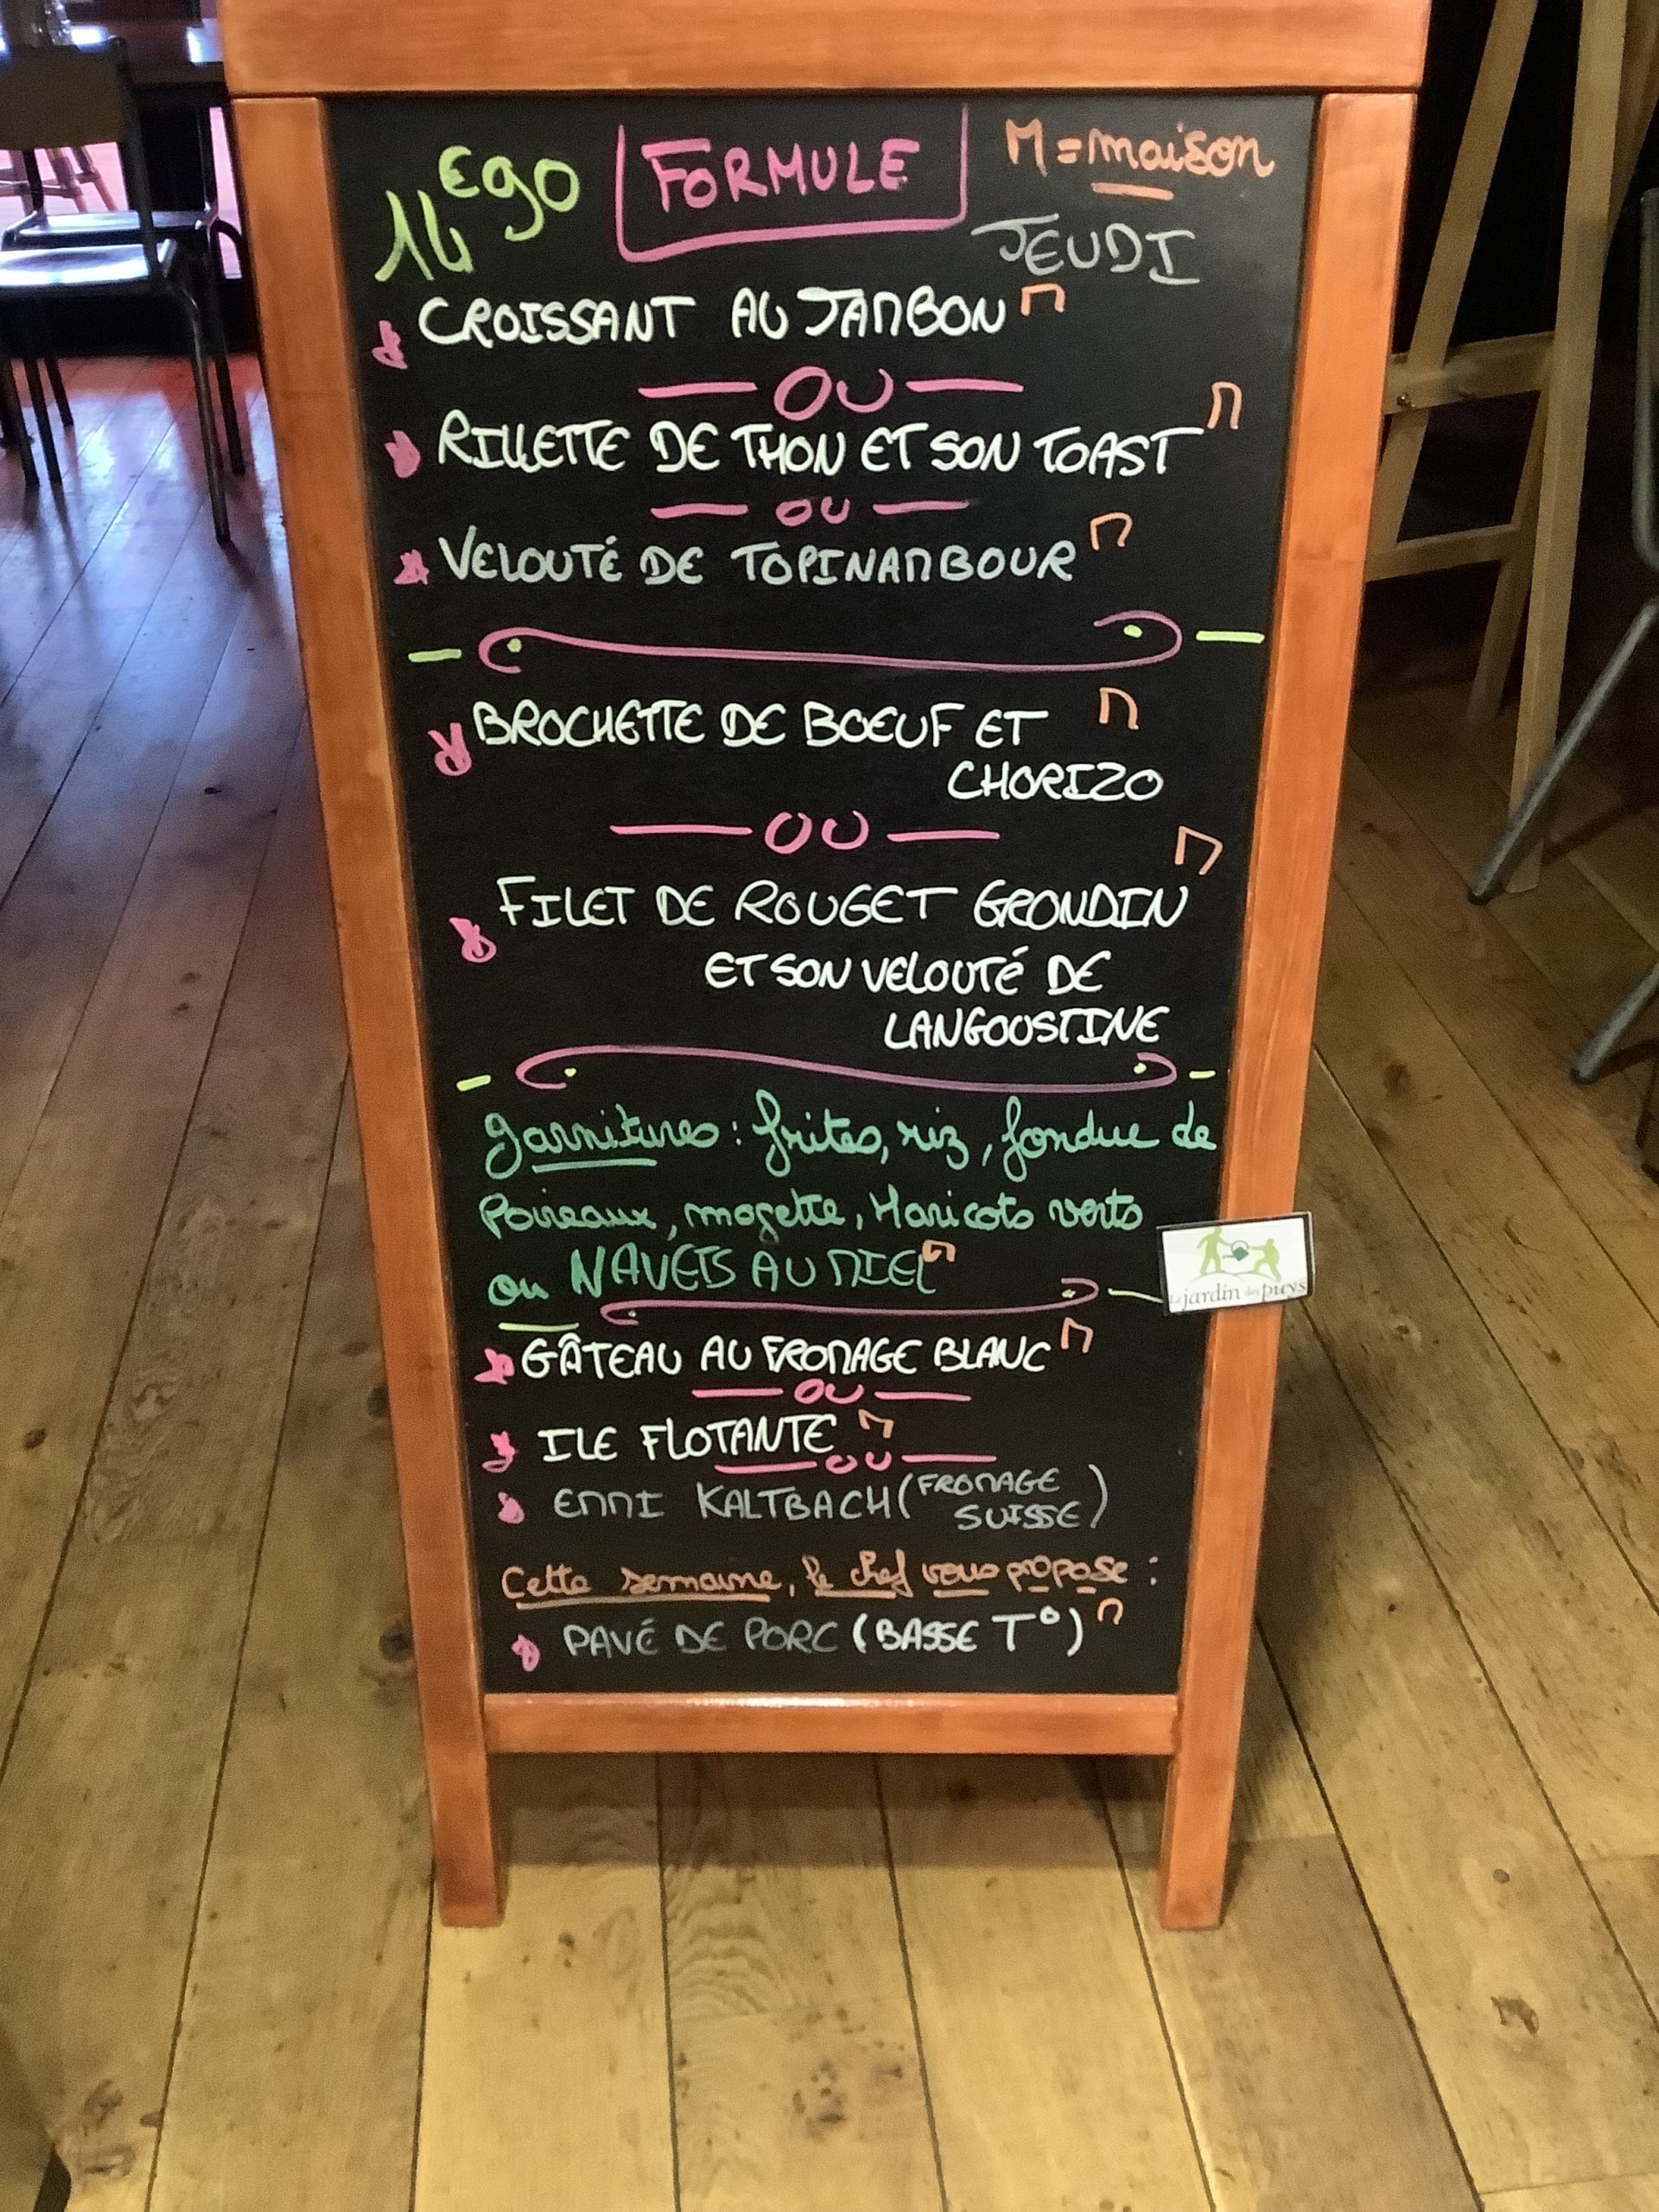 14€90 FORMULE M = maison
JEUDI
CROISSANT AU JAMBON M
OU
RILLETTE DE THON ET SON TOAST M
OU
VELOUTÉ DE TOPINAMBOUR M
BROCHETTE DE BOEUF ET M
CHORIZO
OU
FILET DE ROUGET GRONDIN M
ET SON VELOUTÉ DE
LANGOUSTINE
garnitures : frites, riz, fondue de
Poireaux, mogette, Haricots verts
ou NAVETS AU MIEL M
Le jardin des puys
GÂTEAU AU FROMAGE BLANC M
OU
ILE FLOTANTE M
OU
EMMI KALTBACH (FROMAGE
SUISSE)
Cette semaine, le chef vous propose :
PAVÉ DE PORC (BASSE T°) M